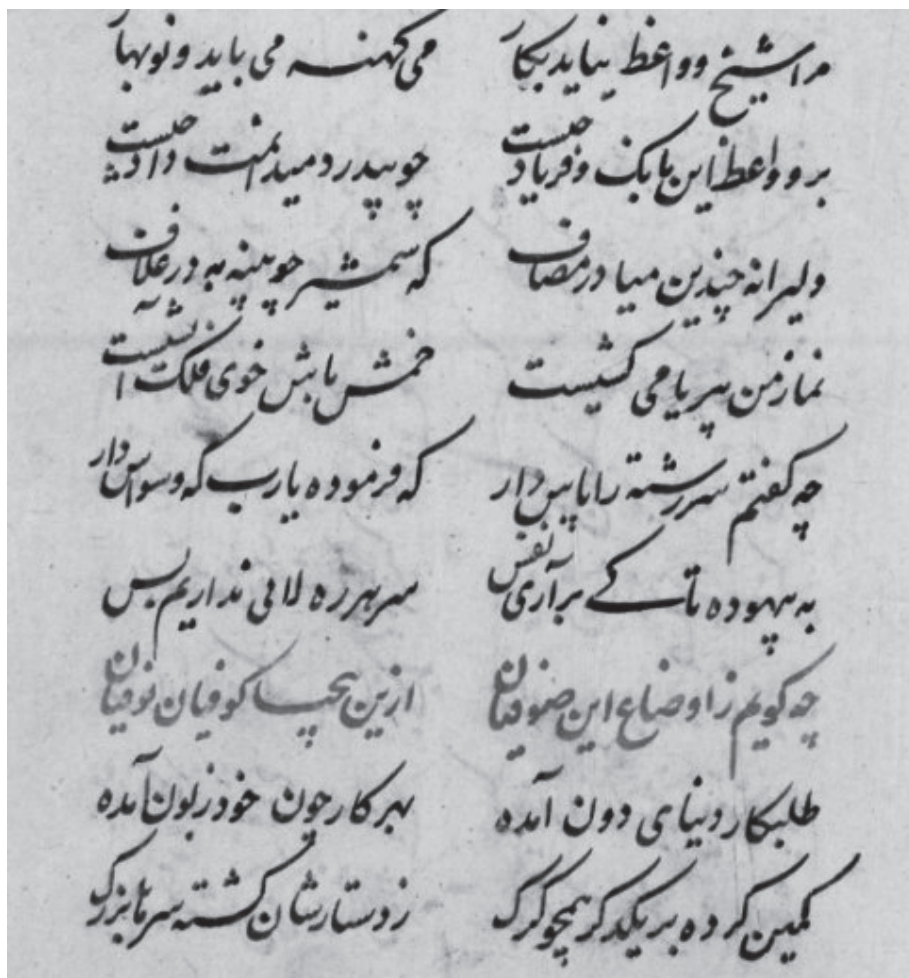 مرا شیخ و واعظ نیاید بکار می کهنه می باید و نوبهار
برو واعظ این بانک و فریاد چیست چو بیدرد میدانمت داد چیست
دلیرانه چندین میا در مصاف که شمشیر چوبینه به در غلاف
نماز من بیریا می کشیست خمش باش خوی فلک آتشیست
چه کفتم سررشته را پاس دار که فرموده یارب که وسواس دار
به بیهوده تا کے برآری نفس سر هرزه لافی نداریم بس
چه کویم ز اوضاع این صوفیان ازین بیحیا کوفیان نوفیان
طلبکار دنیای دون آمده بهر کار چون خود زبون آمده
کمین کرده بر یکدکر همچو کرک ز دستارشان کشته سرها بزرک